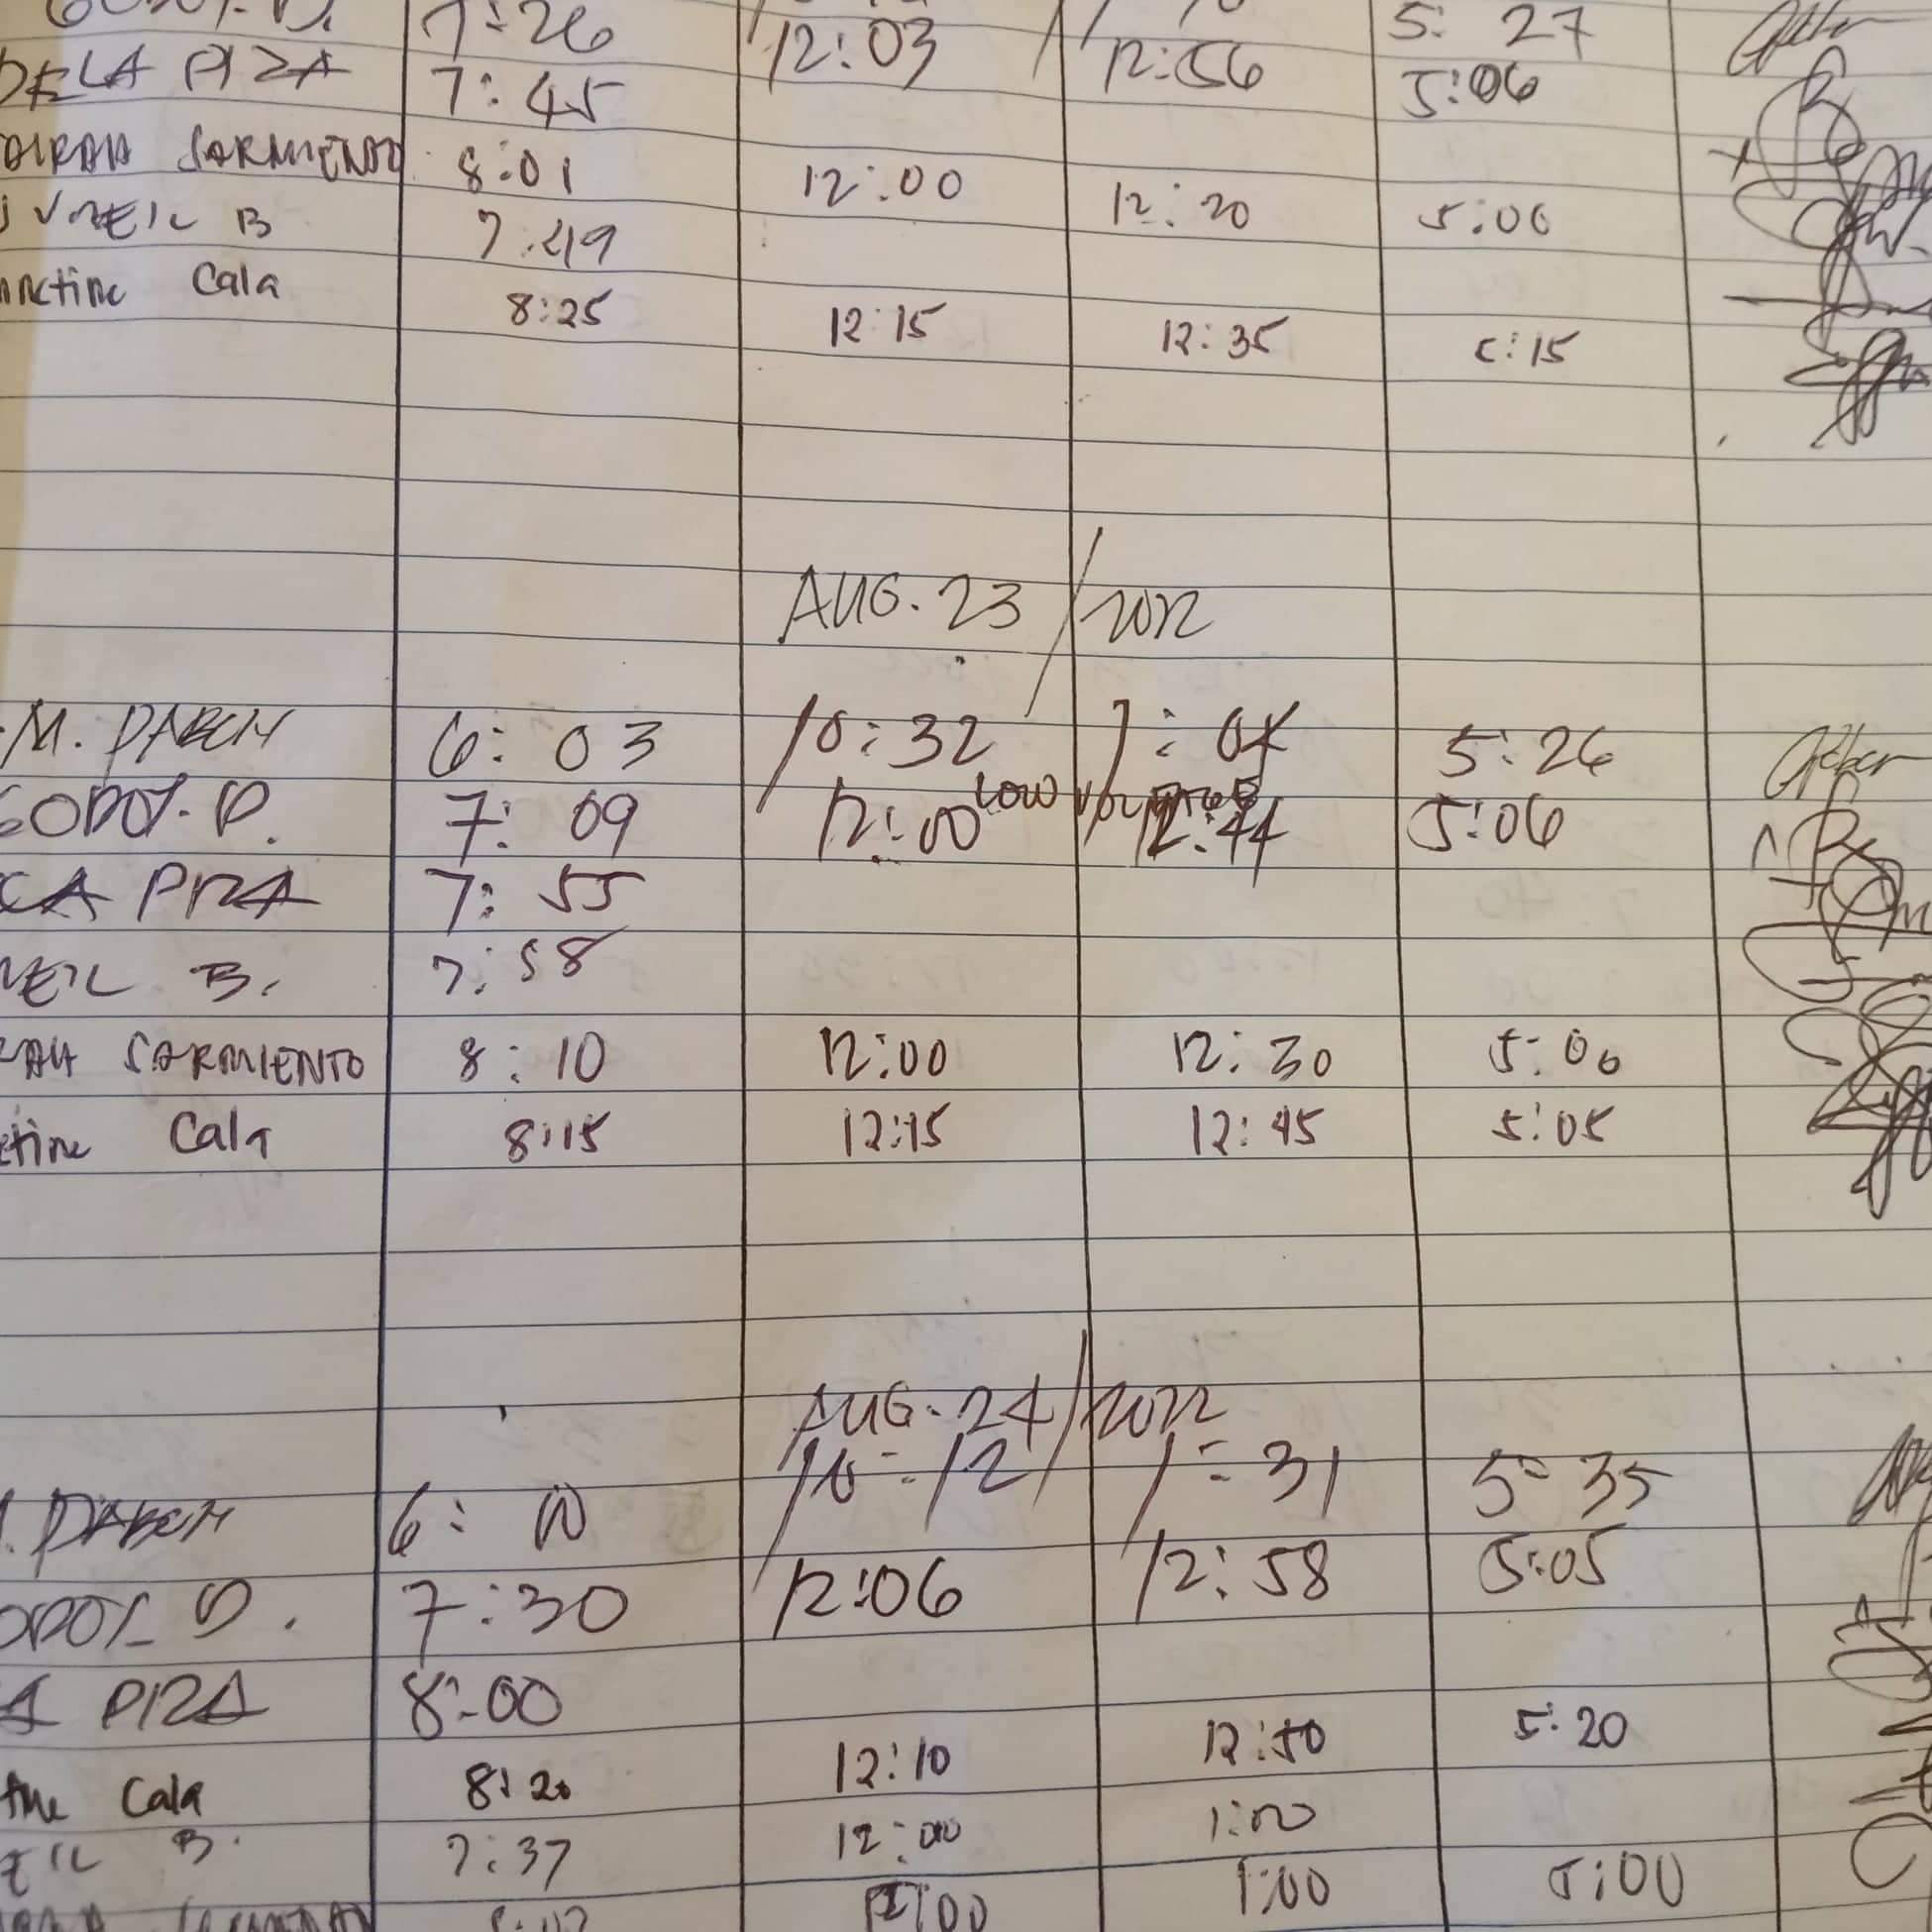 7:26 5:27
DELA PIZA 7:45 12:03 12:56 5:06
SARMIENTO 8:01 12:00 12:20 5:00
B 7:49
Cala 8:25 12:15 12:35 5:15
AUG. 23/2022
M. 6:03 10:32 1:04 5:26
GODOY. D. 7:09 12:00 LOW 12:44 5:06
CA PIZA 7:55
NEIL B. 7:58
RAH SARMIENTO 8:10 12:00 12:30 5:00
ctine Cala 8:15 12:15 12:45 5:05
AUG. 24/2022
6:00 10:12 1:31 5:35
ODOY. D. 7:30 12:06 12:58 5:05
A PIZA 8:00
tine Cala 8:20 12:10 12:50 5:20
EIL B. 7:37 12:00 1:00
12:00 1:00 5:00